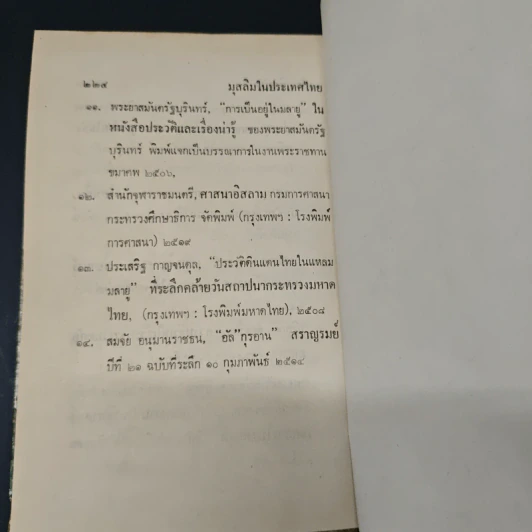 ๒๒๔ มุสลิมในประเทศไทย
๑๑. พระยาสมันตรัฐบุรินทร์, "การเป็นอยู่ในมลายู" ใน
หนังสือประวัติและเรื่องน่ารู้ ของพระยาสมันตรัฐ
บุรินทร์ พิมพ์แจกเป็นบรรณาการในงานพระราชทาน
ฌาปนกิจ ๒๕๐๖.
๑๒. สำนักจุฬาราชมนตรี, ศาสนาอิสลาม กรมการศาสนา
กระทรวงศึกษาธิการ จัดพิมพ์ (กรุงเทพฯ : โรงพิมพ์
การศาสนา) ๒๕๑๙
๑๓. ประเสริฐ กาญจนดุล, "ประวัติดินแดนไทยในแหลม
มลายู" ที่ระลึกคล้ายวันสถาปนากระทรวงมหาด
ไทย, (กรุงเทพฯ : โรงพิมพ์มหาดไทย), ๒๕๐๘
๑๔. สมจัย อนุมานราชธน, "อัล"กุรอาน" สราญรมย์
ปีที่ ๒๑ ฉบับที่ระลึก ๑๐ กุมภาพันธ์ ๒๕๑๔